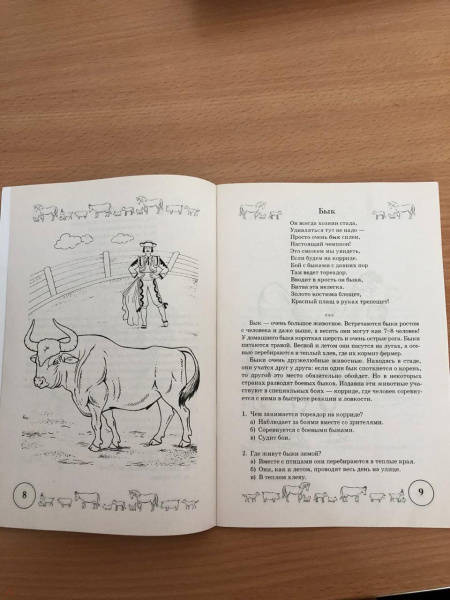 Бык
Он всегда хозяин стада,
Удивляться тут не надо —
Просто очень бык силен,
Настоящий чемпион!
Это сможем мы увидеть,
Если будем на корриде.
Бой с быками с давних пор
Там ведет тореадор.
Вводит в ярость он быка,
Битва эта нелегка.
Золото костюма блещет,
Красный плащ в руках трепещет!
***
Бык — очень большое животное. Встречаются быки ростом
с человека и даже выше, а весить они могут как 7–8 человек!
У домашнего быка короткая шерсть и очень острые рога. Быки
питаются травой. Весной и летом они пасутся на лугах, а осе-
нью перебираются в теплый хлев, где их кормит фермер.
Быки очень дружелюбные животные. Находясь в стаде,
они учатся друг у друга: если один бык споткнется о корень,
то другой это место обязательно обойдет. Но в некоторых
странах разводят боевых быков. Издавна эти животные уча-
ствуют в специальных боях — корриде, где человек соревну-
ется с ними в быстроте реакции и ловкости.
1. Чем занимается тореадор на корриде?
а) Наблюдает за боями вместе со зрителями.
б) Соревнуется с боевыми быками.
в) Судит бои.
2. Где живут быки зимой?
а) Вместе с птицами они перебираются в теплые края.
б) Они, как и летом, проводят весь день на улице.
в) В теплом хлеву.
8
9